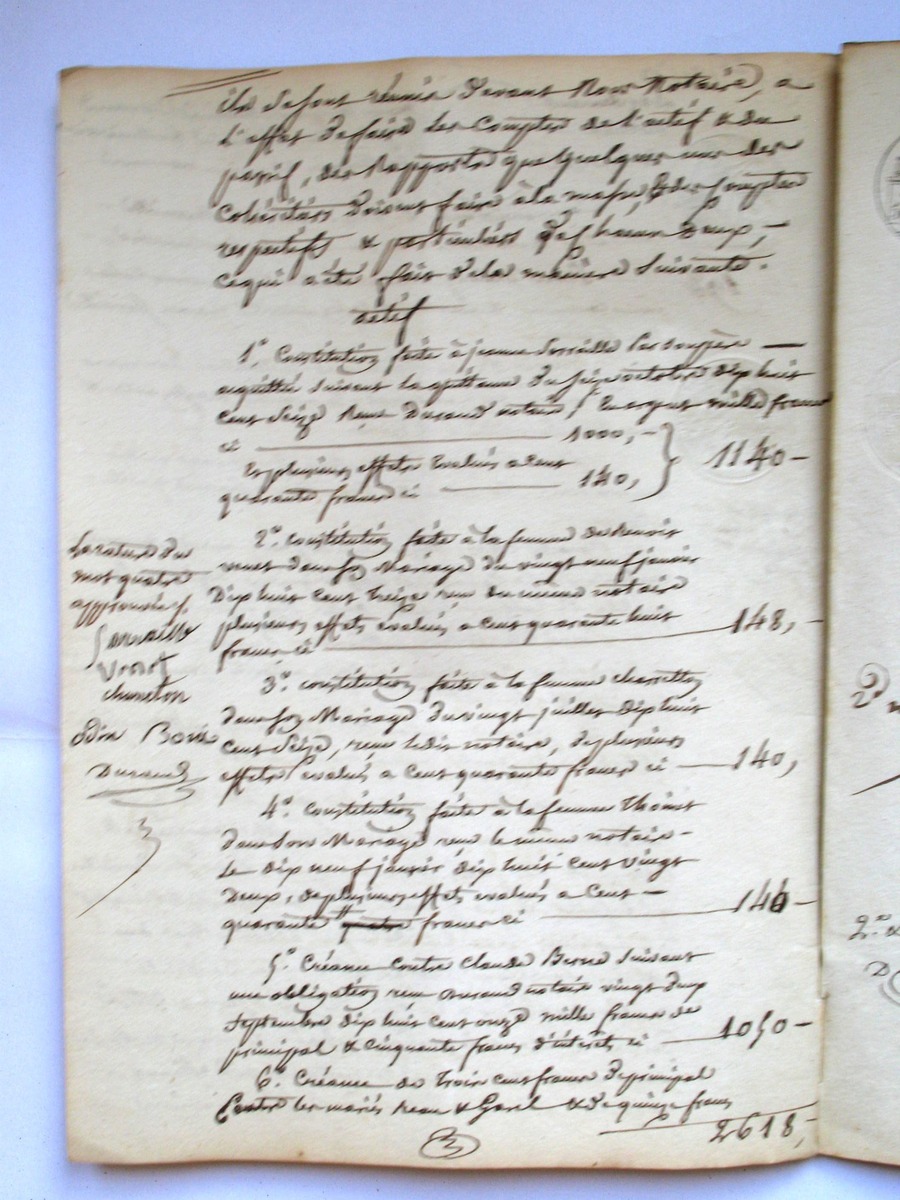 ils se sont réunis devant Nous Notaire, a
l'effet de faire les Comptes de l'actif & du
passif, des Rapports que quelques uns des
cohéritiers doivent faire à la masse, & des Comptes
respectifs & particuliers de chacun d'eux, —
ce qui a été fait de la manière suivante.
actif
1.° Constitution faite à jeanne —
acquittée suivant la quittance du seize octobre dix huit
cent seize Reçue Durand notaire, En argent mille francs
ci — 1000, —
En plusieurs effets Evalués a cent
quarante francs ci — 140,
1140 —
2.° constitution faite à la femme de Benoit
dans son Mariage du vingt neuf janvier
Dix huit cent treize reçu du même notaire
plusieurs effets évalués a cent quarante huit
francs ci — 148, —
3.° constitution faite à la femme
dans son Mariage du vingt juillet dix huit
cent Seize, reçu ledit notaire, de plusieurs
effets évalués a cent quarante francs ci — 140,
4.° constitution faite à la femme
dans son Mariage reçu le même notaire —
Le dix neuf janvier dix huit cent vingt
Deux, de plusieurs effets évalués a cent —
quarante quatre francs ci — 140 —
5.° Créance contre Claude suivant
une obligation reçue Durand notaire vingt deux
septembre dix huit cent onze mille francs de
principal & cinquante francs d'intérêts ci — 1050 —
6.° Créance de trois cent francs de principal
Contre les mariés & & de quinze francs
2618,
3
La rature du
mot quatre
approuvée.
chometon
Odin
Durand
2.°
2.°
D